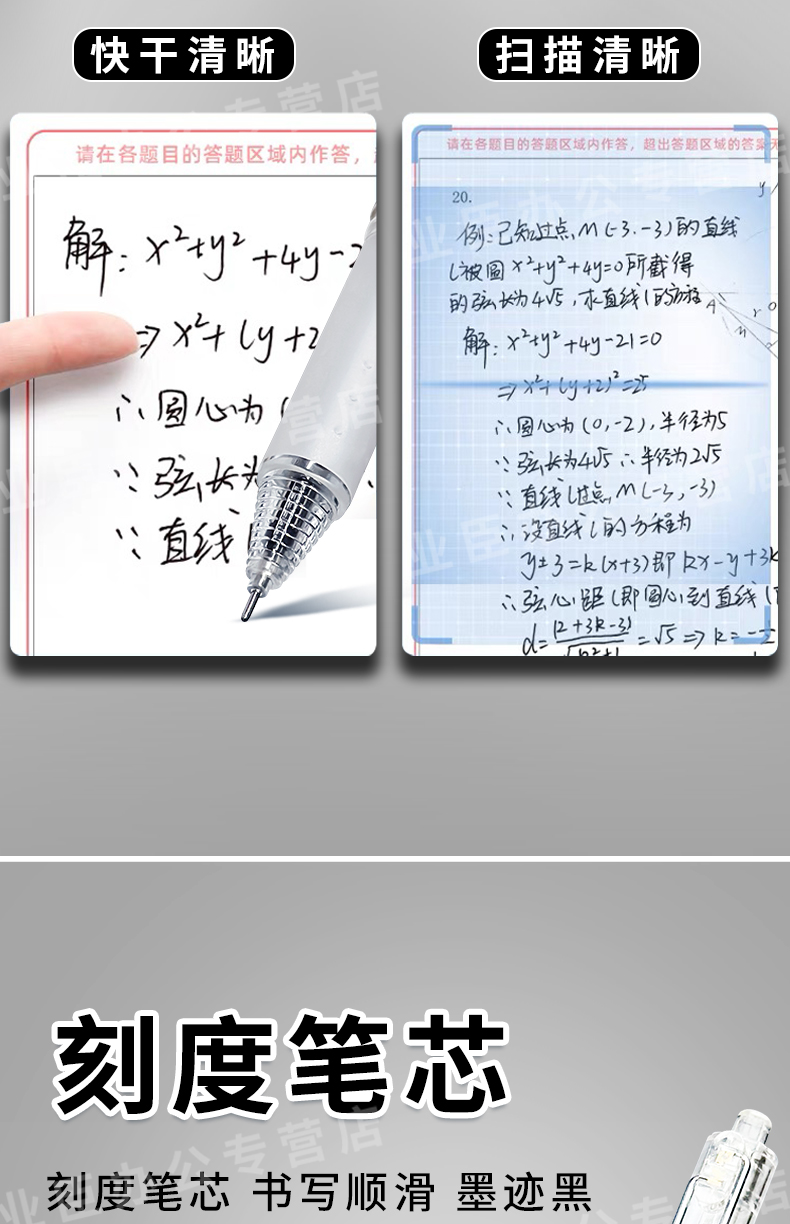 快干清晰
扫描清晰
请在各题目的答题区域内作答，
解：x²+y²+4y-2
⇒x²+(y+2
∴圆心为(
∵弦长为
∵直线
请在各题目的答题区域内作答，超出答题区域的答案无
20.
例：已知过点M(-3.-3)的直线
l被圆x²+y²+4y=0所截得
的弦长为4√5，求直线l的方程
解：x²+y²+4y-21=0
⇒x²+(y+2)²=25
∴圆心为(0,-2),半径为5
∵弦长为4√5∴半径为2√5
∵直线l过点M(-3,-3)
∴设直线l的方程为
y±3=k(x+3)即kx-y+3k
∴弦心距(即圆心到直线l
d=|2+3k-3|/√k²+1=√5⇒k=-
y
A
r
M
刻度笔芯
刻度笔芯 书写顺滑 墨迹黑
业臣办公专营店